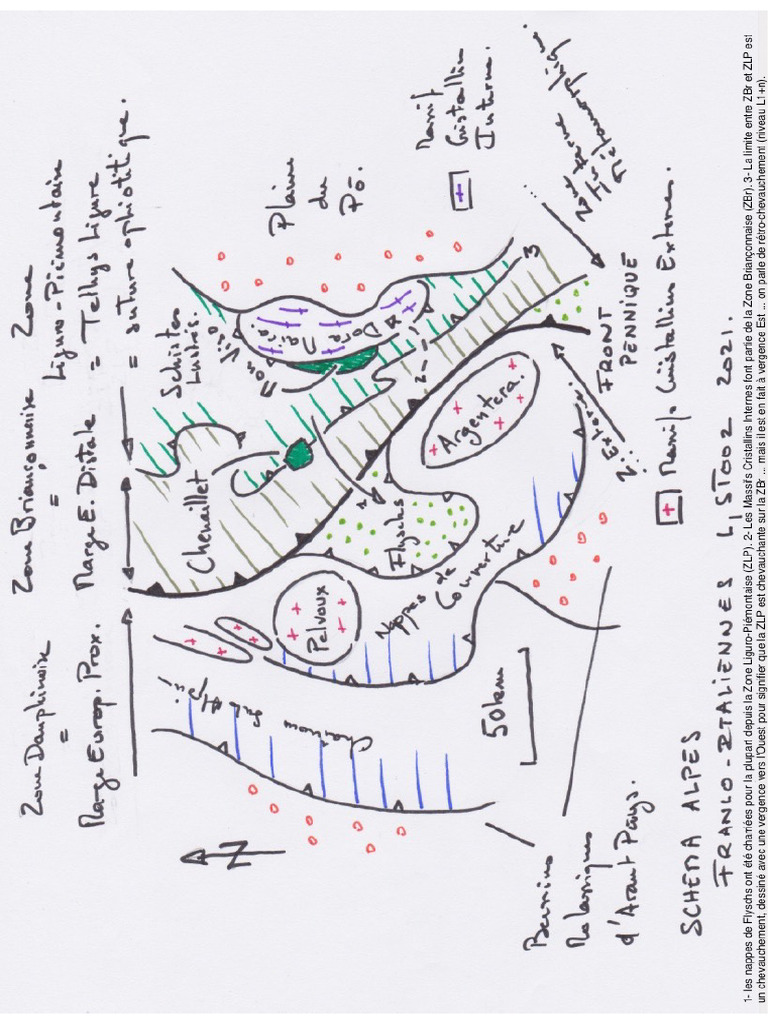 Zone Dauphinoise
=
Marge Europ. Prox.
Zone Briançonnaise
=
Marge E. Distale
Zone
Liguro-Piémontaise
= Téthys Ligure
= suture ophiolitique.
N
Schistes
Lustrés.
Mon Viso
Dora Maira
Plaine
du
Pô.
+ Massif
Cristallin
Interne.
Chenaillet
Pelvoux
Flyschs
Argentera.
Chaînons Sub Alpin
Nappes de
Couverture
1
2
3
50 kms
FRONT
PENNIQUE
+ Massifs Cristallins Externes.
Bassins
Molassiques
d'Avant Pays.
SCHEMA ALPES
FRANCO-ITALIENNES L1STOO2 2021.
1- les nappes de Flyschs ont été charriées pour la plupart depuis la Zone Liguro-Piémontaise (ZLP). 2- Les Massifs Cristallins Internes font partie de la Zone Briançonnaise (ZBr). 3- La limite entre ZBr et ZLP est
un chevauchement, dessiné avec une vergence vers l'Ouest pour signifier que la ZLP est chevauchante sur la ZBr ... mais il est en fait à vergence Est ... on parle de rétro-chevauchement (niveau L1+n).